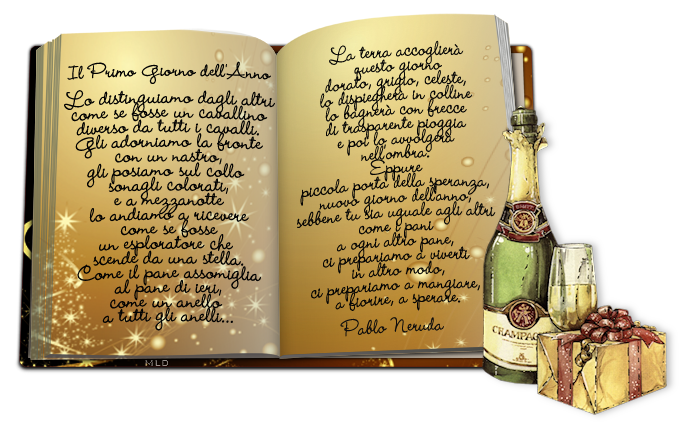 Il Primo Giorno dell'Anno
Lo distinguiamo dagli altri
come se fosse un cavallino
diverso da tutti i cavalli.
Gli adorniamo la fronte
con un nastro,
gli posiamo sul collo
sonagli colorati,
e a mezzanotte
lo andiamo a ricevere
come se fosse
un esploratore che
scende da una stella.
Come il pane assomiglia
al pane di ieri,
come un anello
a tutti gli anelli...
MLD
La terra accoglierà
questo giorno
dorato, grigio, celeste,
lo dispiegherà in colline
lo bagnerà con frecce
di trasparente pioggia
e poi lo avvolgerà
nell'ombra.
Eppure
piccola porta della speranza,
nuovo giorno dell'anno,
sebbene tu sia uguale agli altri
come i pani
a ogni altro pane,
ci prepariamo a viverti
in altro modo,
ci prepariamo a mangiare,
a fiorire, a sperare.
Pablo Neruda
CHAMPAG